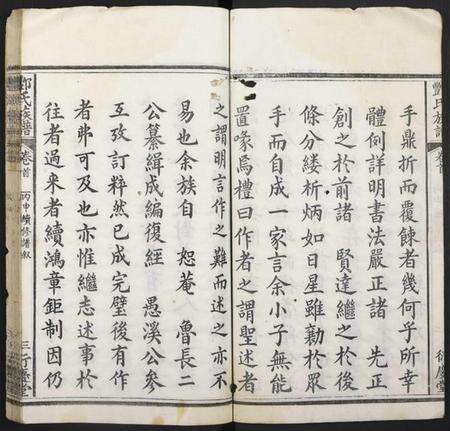 鄧氏族譜
卷首
手鼎折而覆餗者幾何乎所幸
體例詳明書法嚴正諸 先正
創之於前諸 賢達繼之於後
條分縷析炳如日星雖勤於眾
手而自成一家言余小子無能
置喙焉禮曰作者之謂聖述者
之謂明言作之難而述之亦不
易也余族自 恕菴 魯長二
公纂緝成編復經 愚溪公參
互攷訂粹然已成完璧後有作
者弗可及也亦惟繼志述事於
往者過來者續鴻章鉅制因仍
鄧氏族譜
卷首
丙申續修譜敘
三